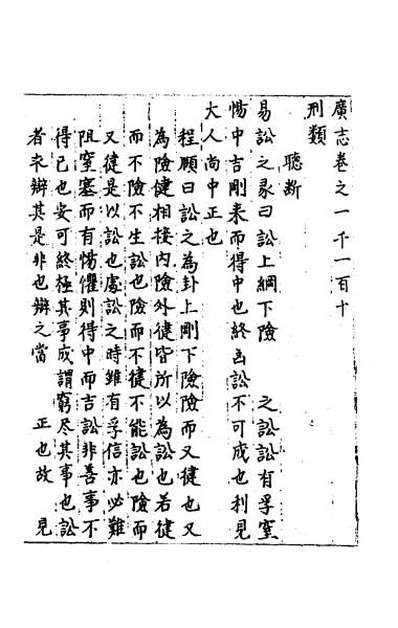 廣志卷之一千一百十
刑類
聽斷
易訟之彖曰訟上綱下險 之訟訟有孚窒
惕中吉剛来而得中也終㐫訟不可成也利見
大人尚中正也
程頤曰訟之為卦上剛下險險而又徤也又
為險健相接内險外徤皆所以為訟也若徤
而不險不生訟也險而不徤不能訟也險而
又徤是以訟也處訟之時雖有孚信亦必難
阻窒塞而有惕懼則得中而吉訟非善事不
得已也安可終極其事成謂窮尽其事也訟
者求辯其是非也辯之當 正也故 見